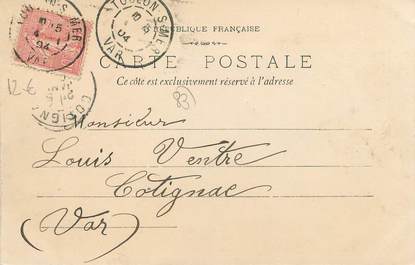 TOULON-S-MER
VAR
04
TOULON-S-MER
VAR
04
RÉPUBLIQUE FRANÇAISE
CARTE POSTALE
Ce côté est exclusivement réservé à l'adresse
12-6
83
COTIGNAC
Monsieur
Louis Ventre
Cotignac
(Var)